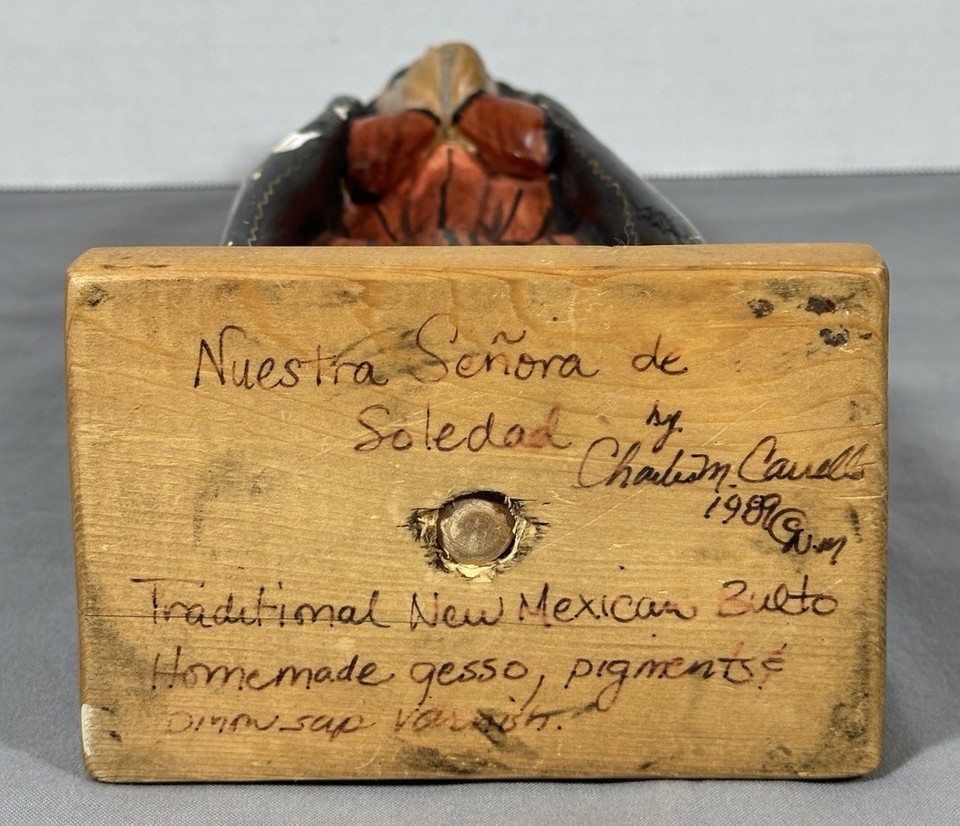 Nuestra Señora de
Soledad
by
Charles M. Carrillo
1989 © N.M
Traditional New Mexican Bulto
Homemade gesso, pigments &
pinon sap varnish.